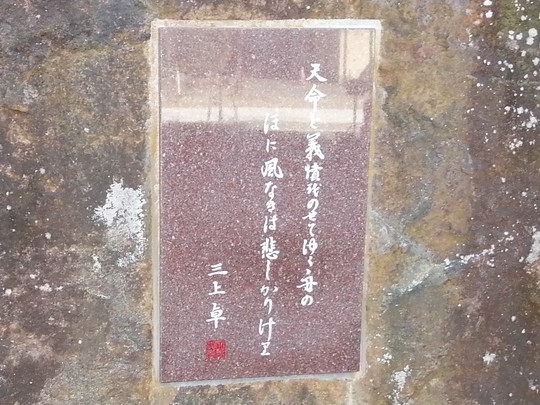 天命と義憤をのせてゆく舟の
ほに風なきは悲しかりけり
三上卓